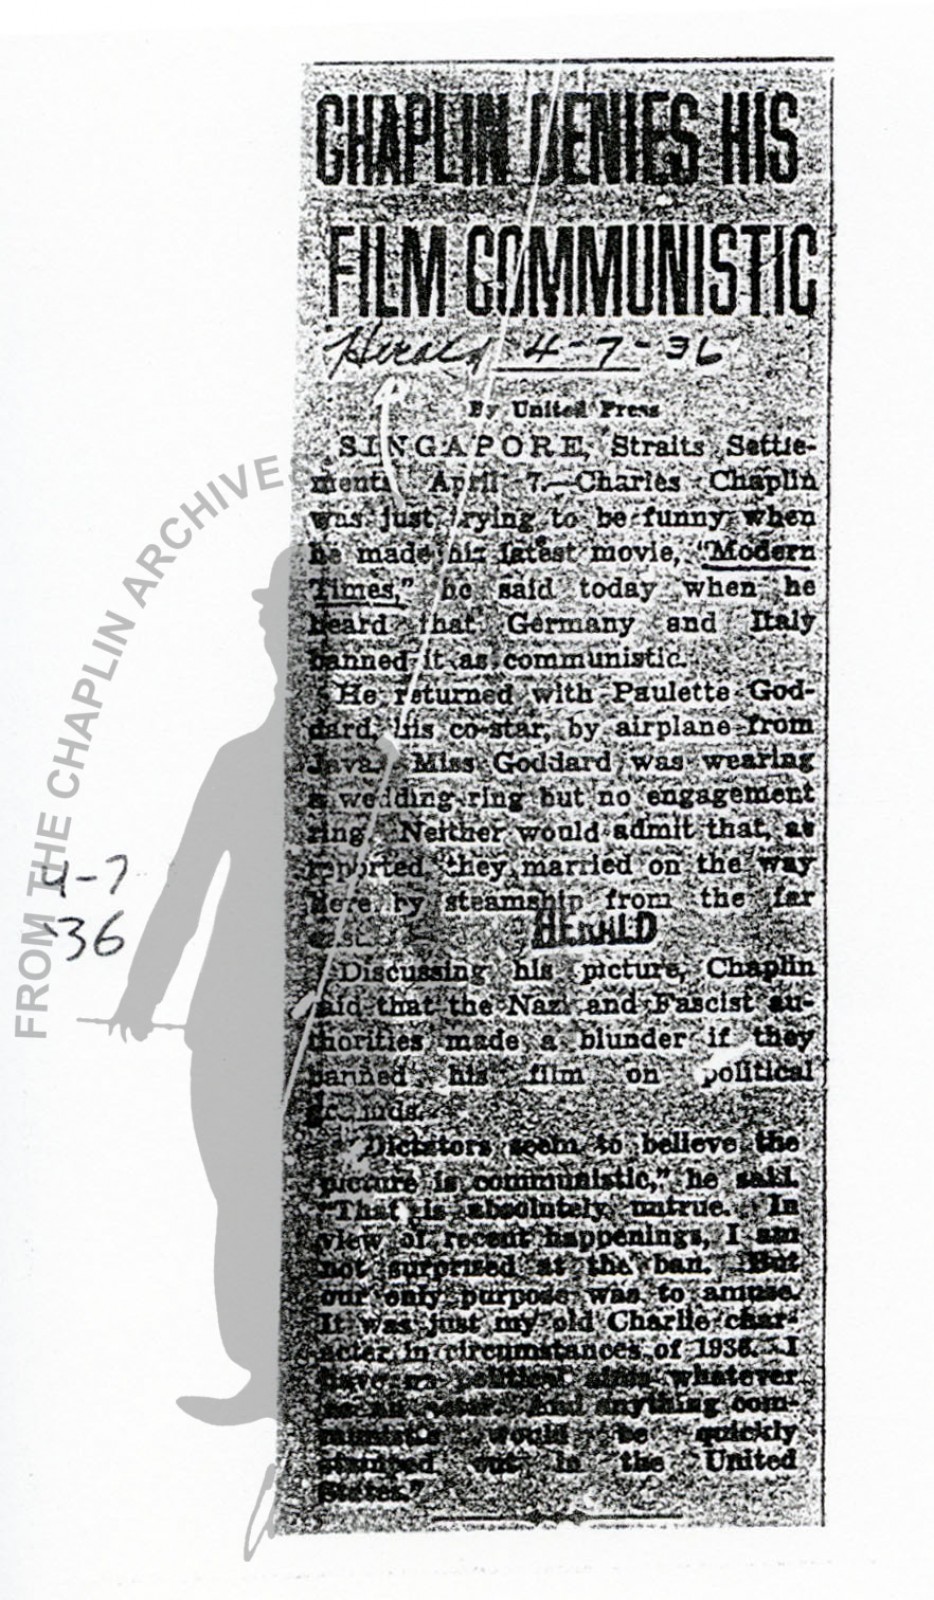 CHAPLIN DENIES HIS
FILM COMMUNISTIC
Herald 4-7-36
By United Press
SINGAPORE, Straits Settle-
ments, April 7.—Charles Chaplin
was just trying to be funny when
he made his latest movie, "Modern
Times," he said today when he
heard that Germany and Italy
banned it as communistic.
He returned with Paulette God-
dard, his co-star, by airplane from
Java. Miss Goddard was wearing
a wedding ring but no engagement
ring. Neither would admit that, as
reported they married on the way
here by steamship from the far
east.
HERALD
Discussing his picture, Chaplin
said that the Nazi and Fascist au-
thorities made a blunder if they
banned his film on political
grounds.
"Dictators seem to believe the
picture is communistic," he said.
"That is absolutely untrue. In
view of recent happenings, I am
not surprised at the ban. But
our only purpose was to amuse.
It was just my old Charlie char-
acter in circumstances of 1936. I
have no political aims whatever
as an actor. And anything com-
munistic would be quickly
stamped out in the United
States."
FROM THE CHAPLIN ARCHIVES
4-7
36